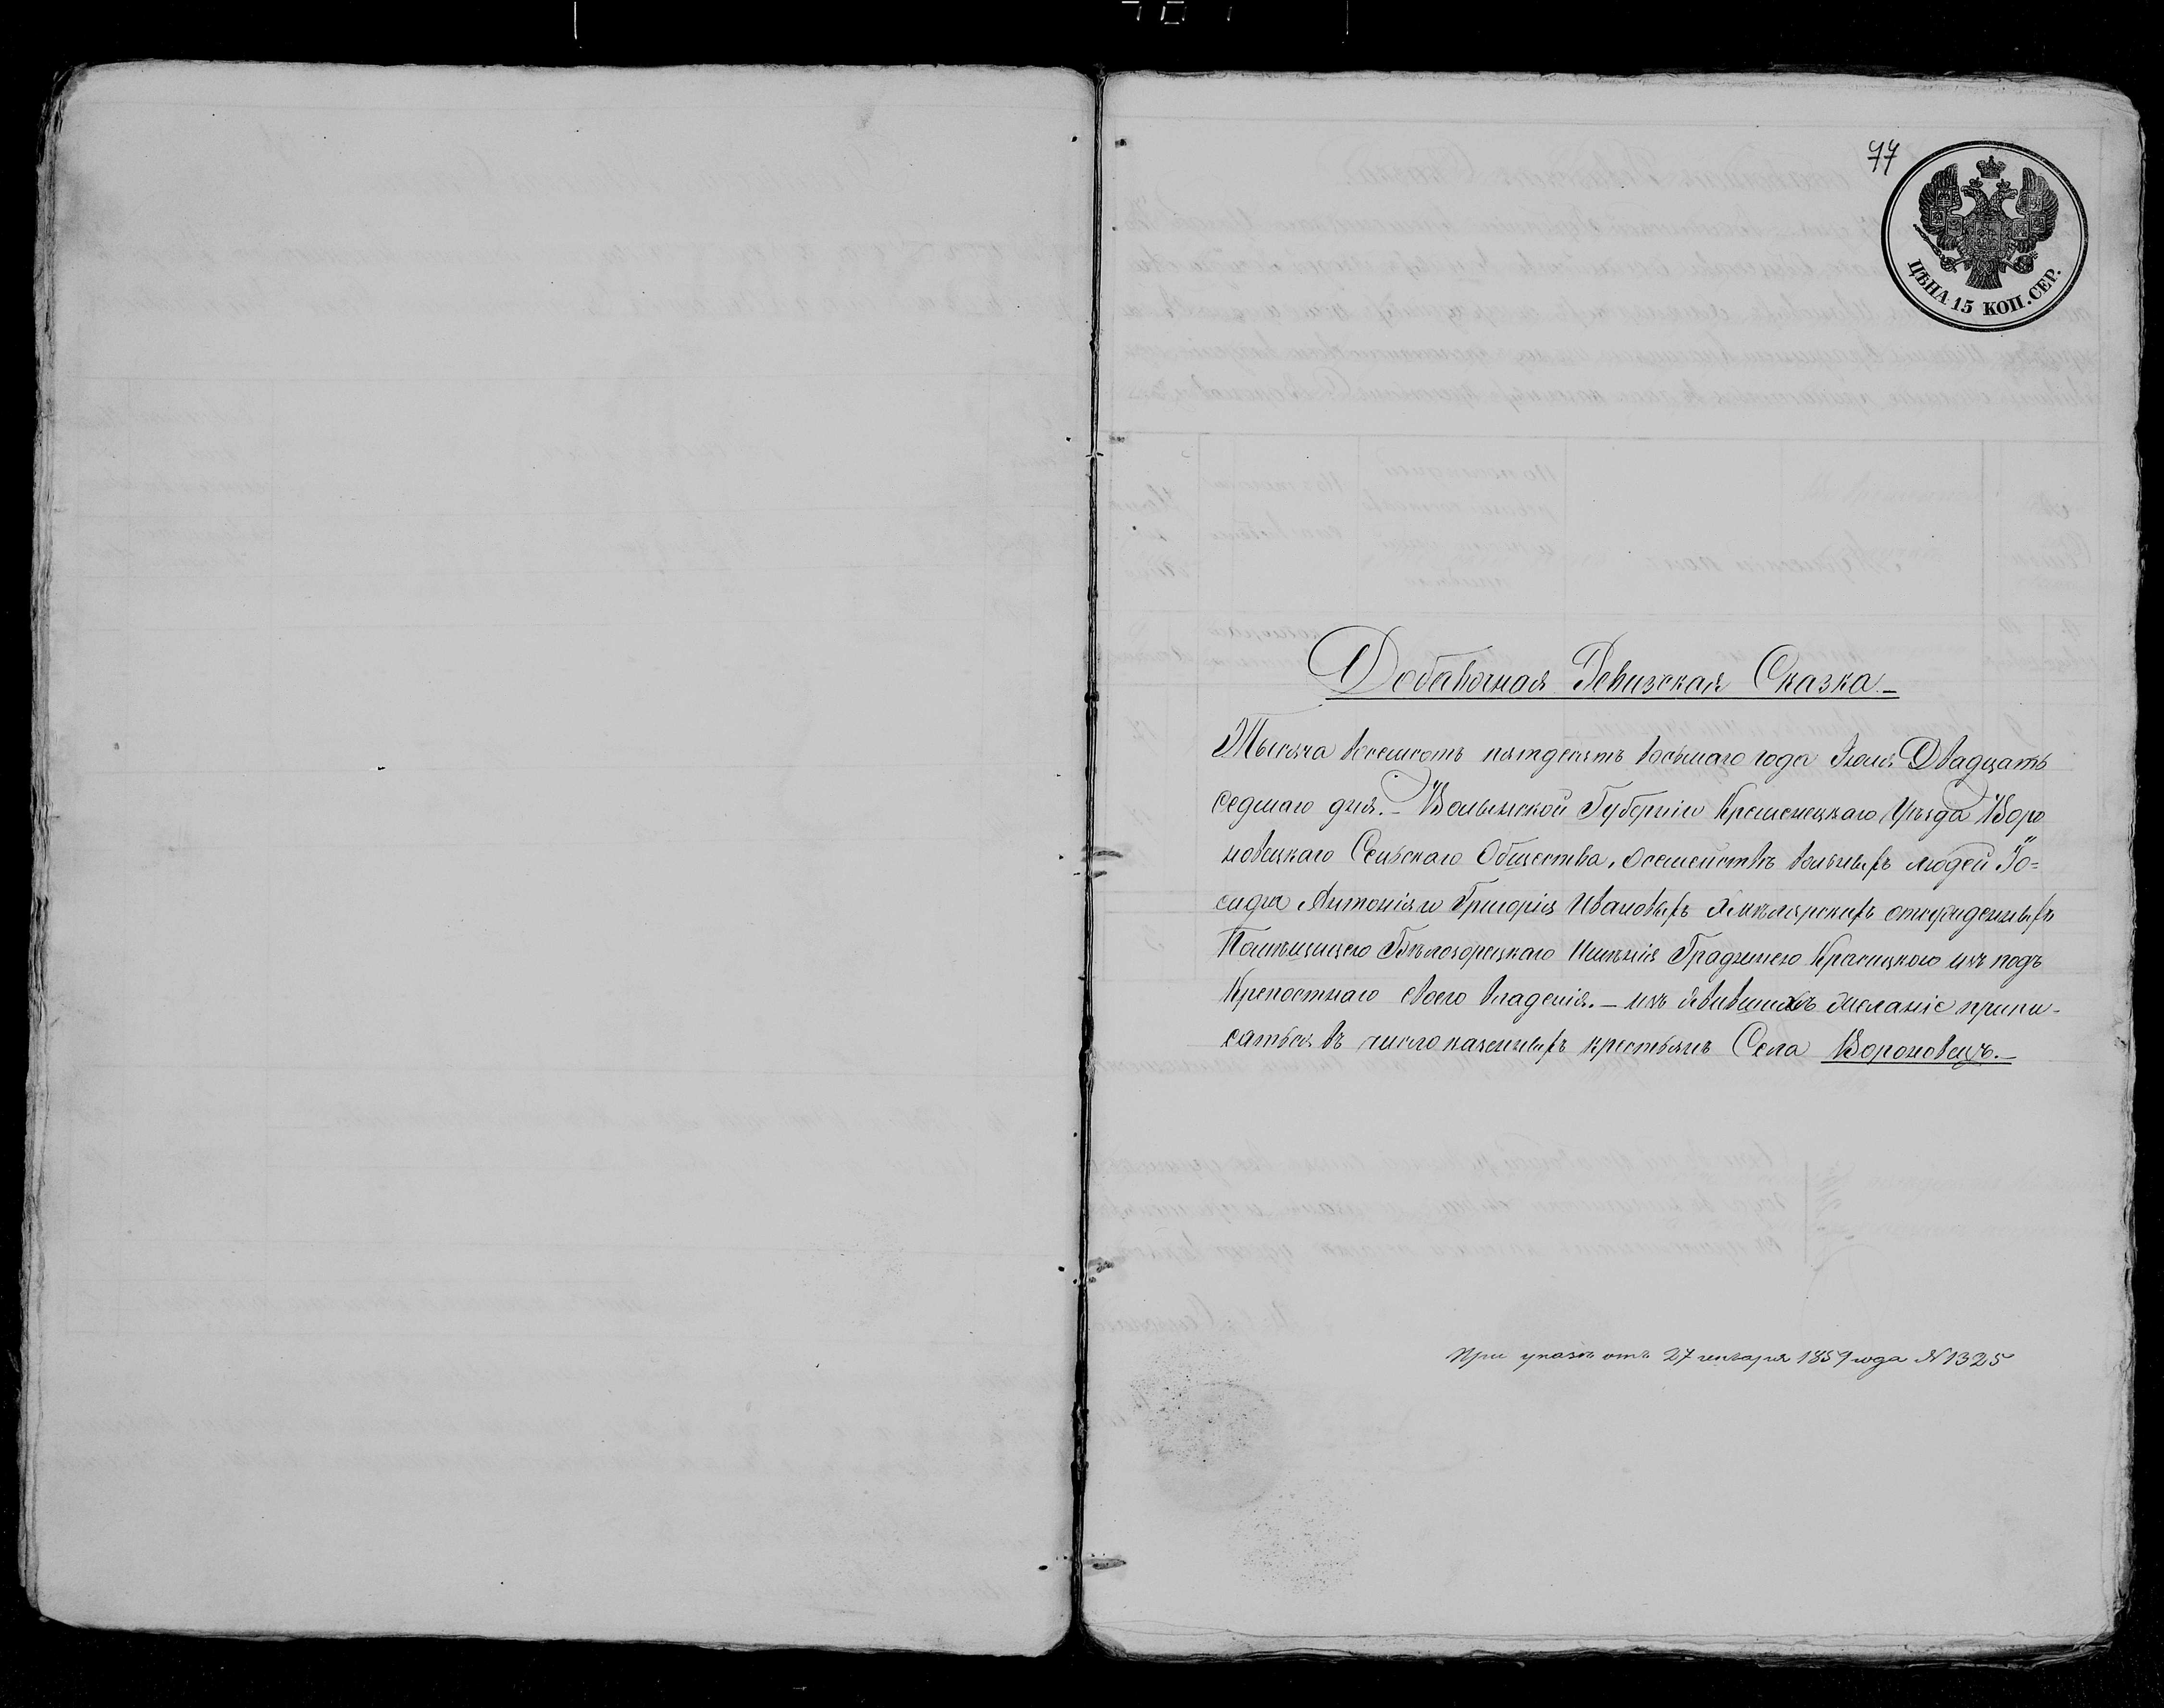 77
ЦѢНА 15 КОП. СЕР.
Добавочная Ревизская Сказка.-
Тысяча восемсотъ пятдесятъ восьмаго года Іюля Двадцать
седмаго дня.- Волынской Губерніи Кременецкаго Уѣзда Воро
новецкаго Сельскаго Общества, о семействѣ вольныхъ людей Іо=
сифа Антонія и Григорія Ивановыхъ отпущенныхъ
Помѣщицею Бѣлозорецкаго Имѣнія Графинею Красицкою изъ подъ
Крепостнаго своего владенія.- изъявившихъ желаніе припи-
саться въ число казенныхъ крестьянъ Села Вороновецъ.-
При указѣ отъ 27 января 1859 года №1325